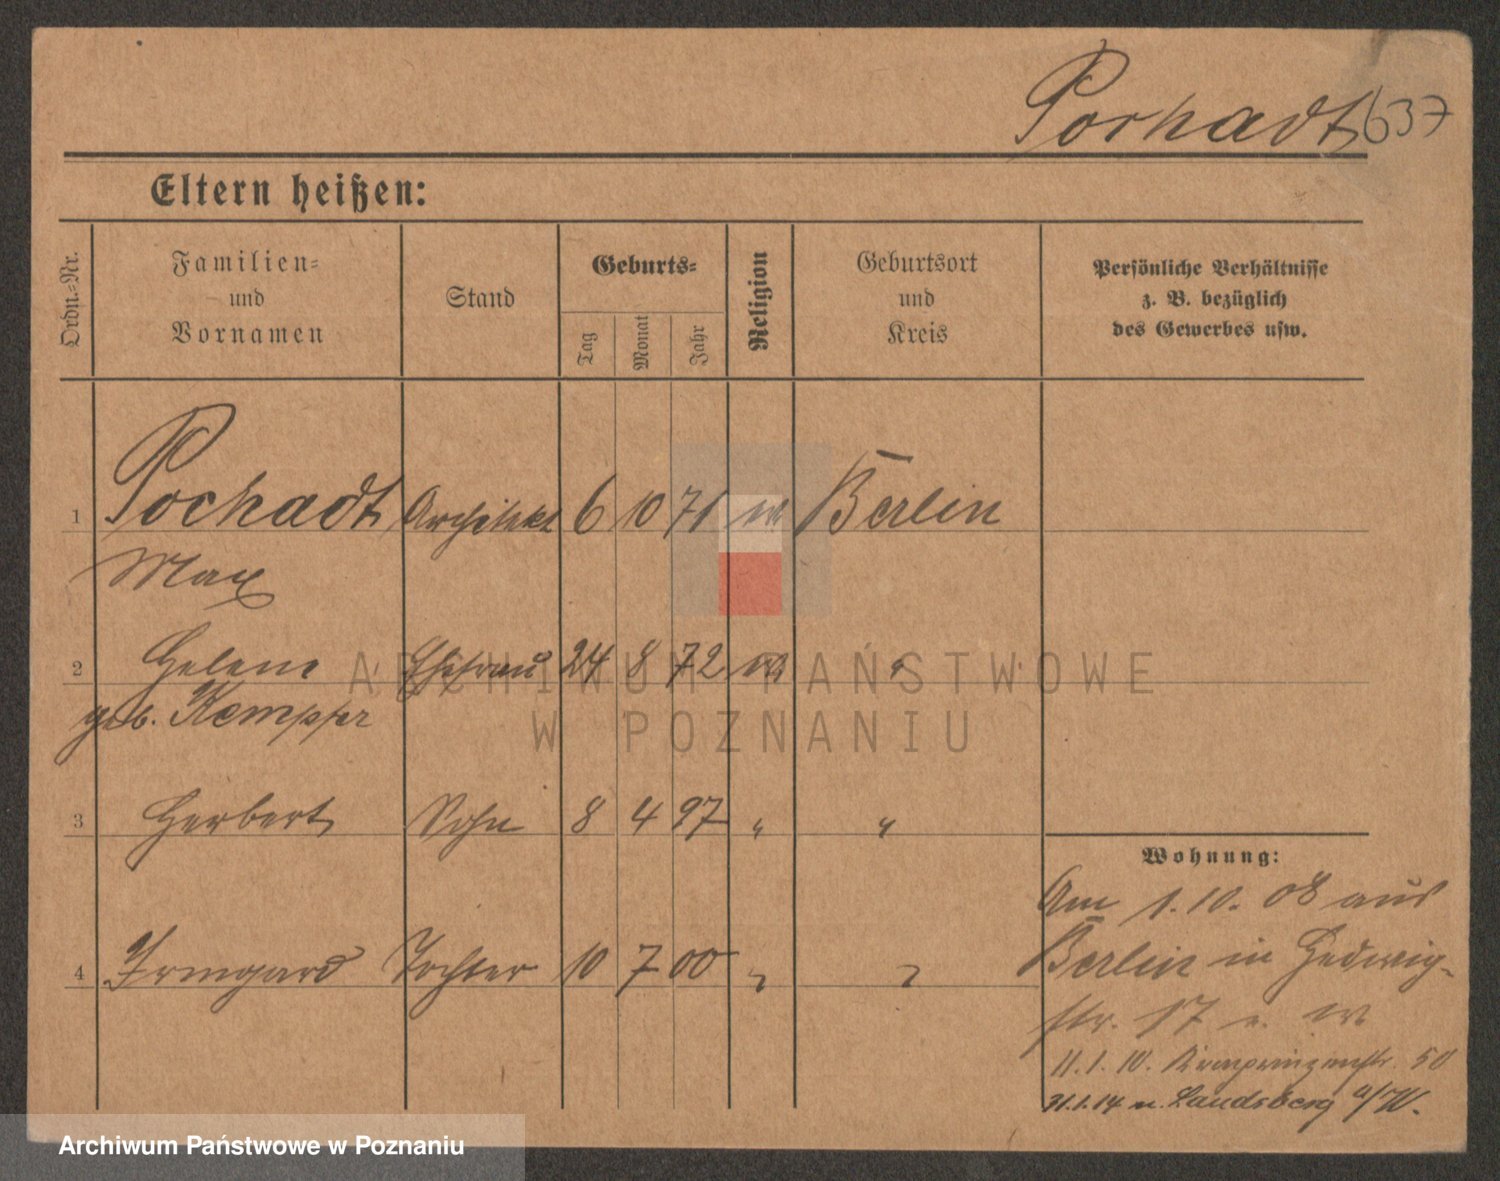 Pochadt 637
Eltern heißen:
Ordn.-Nr.
Familien-
und
Vornamen
Stand
Geburts-
Tag
Monat
Jahr
Religion
Geburtsort
und
Kreis
Persönliche Verhältnisse
z. B. bezüglich
des Gewerbes usw.
1 Pochadt Architekt 6 10 71 ev Berlin
Max
2 Helene Ehefrau 24 8 72 ev "
geb. Kempfer
3 Herbert Sohn 8 4 97 " "
4 Irmgard Tochter 10 7 00 " "
Wohnung:
Am 1.10.08 aus
Berlin in Hedwig-
str. 17
11.1.10. Kronprinzenstr. 50
31.1.14 n. Landsberg a/W.
ARCHIWUM PAŃSTWOWE
W POZNANIU
Archiwum Państwowe w Poznaniu